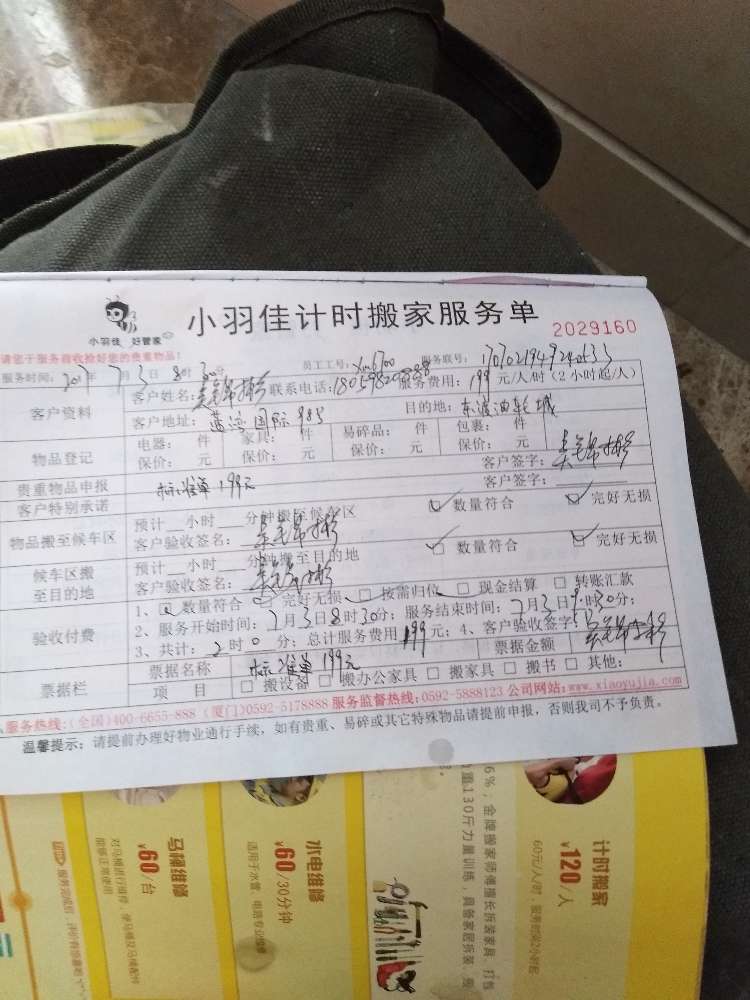 小羽佳 好管家
小羽佳计时搬家服务单
2029160
请您于服务前收捡好您的贵重物品!
服务时间: 2017年7月3日8时30分 员工工号: 服务联号:
客户资料
客户姓名: 联系电话: 服务费用: 199元/人/时 (2小时起/人)
客户地址: 蓝湾国际985 目的地: 东渡油轮城
物品登记
电器: 件 家具: 件 易碎品: 件 包裹: 件
保价: 元 保价: 元 保价: 元 保价: 元
贵重物品申报 标准单199元 客户签字:
客户特别承诺 客户签字:
物品搬至候车区
预计__小时__分钟搬至候车区 数量符合 完好无损
客户验收签名:
候车区搬至目的地
预计__小时__分钟搬至目的地 数量符合 完好无损
客户验收签名:
验收付费
1、数量符合 完好无损 按需归位 现金结算 转账汇款
2、服务开始时间: 7月3日8时30分; 服务结束时间: 7月3日 时30分;
3、共计: 2时0分; 总计服务费用199元; 4、客户验收签字:
票据栏
票据名称 标准单199元 票据金额
项 目 搬设备 搬办公家具 搬家具 搬书 其他:
服务热线:(全国)400-6655-888 (厦门)0592-5178888 服务监督热线:0592-5888123 公司网站:www.xiaoyujia.com
温馨提示: 请提前办理好物业通行手续, 如有贵重、易碎或其它特殊物品请提前申报, 否则我司不予负责。
计时搬家
¥120/人
60元/人/时, 服务时间2小时起
6%, 金牌搬家师傅擅长拆装家具, 打包
130斤力量训练, 具备家居拆装、
水电维修
¥60/30分钟
适用于水管、电路专业维修
马桶维修
¥60/台